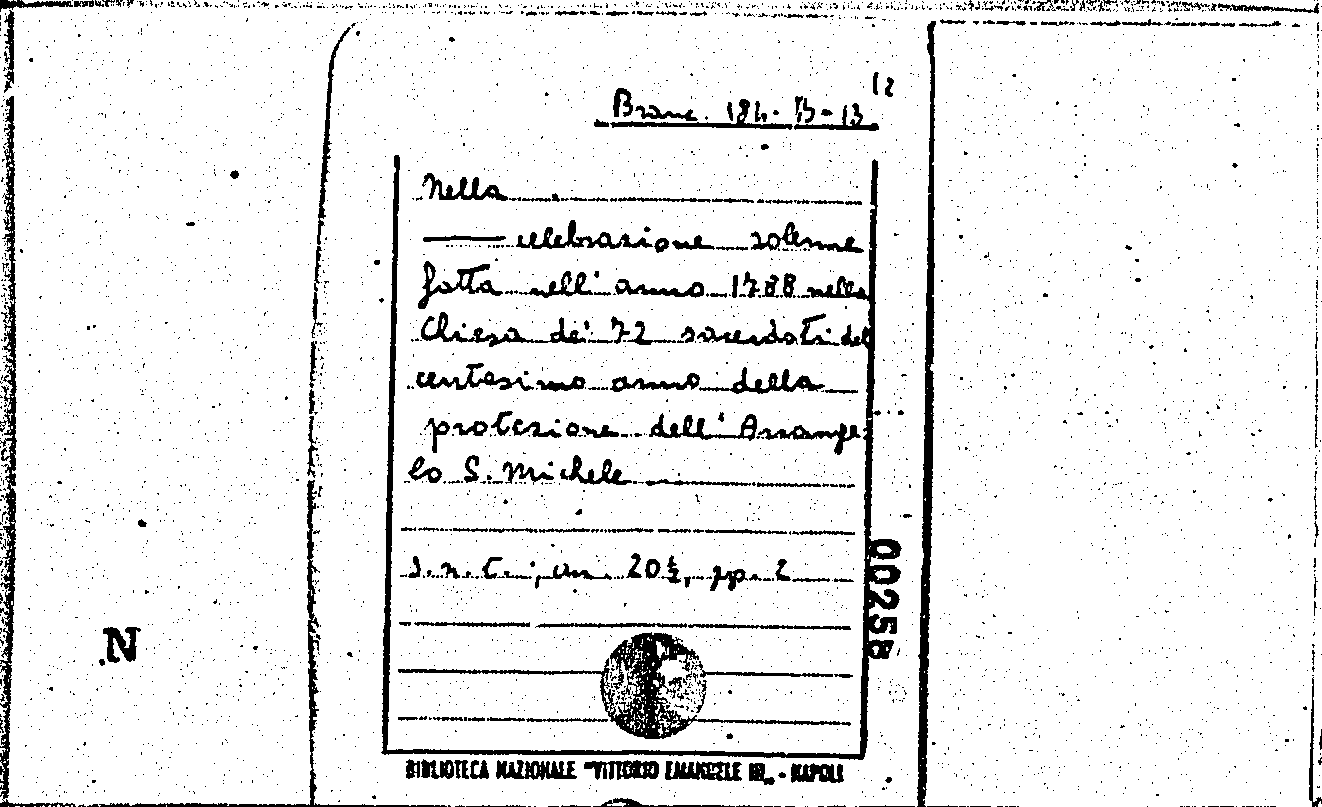 12
Branc. 184. 13-13
Nella
celebrazione solenne
fatta nell' anno 1788 nella
Chiesa dei 72 sacerdoti del
centesimo anno della
protezione dell' Arcange-
lo S. Michele
s.n.t.; cm. 20½, pp. 2
00258
N
BIBLIOTECA NAZIONALE "VITTORIO EMANUELE III" - NAPOLI